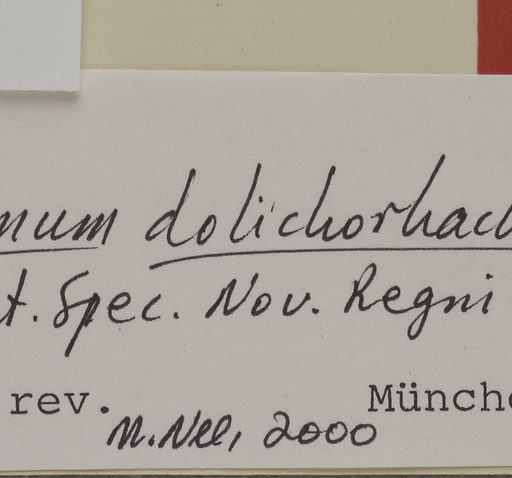 num dolichorhach
t. Spec. Nov. Regni
rev. Münche
M. Nee, 2000